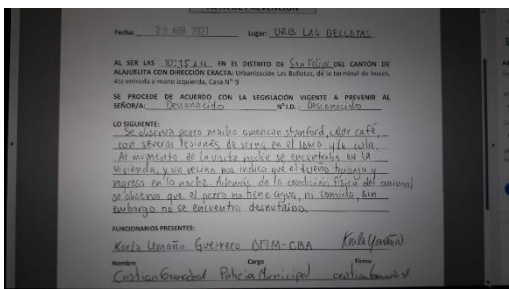 ACTA DE PREVENCIÓN
Fecha: 20 ABR 2021 Lugar: URB LAS BELLOTAS
AL SER LAS 10:15 A.M EN EL DISTRITO DE San Felipe DEL CANTÓN DE
ALAJUELITA CON DIRECCIÓN EXACTA: Urbanización Las Bellotas, dé la terminal de buses,
4ta entrada a mano izquierda, Casa N° 9
SE PROCEDE DE ACUERDO CON LA LEGISLACIÓN VIGENTE A PREVENIR AL
SEÑOR/A: Desconocido N°I.D.: Desconocido
LO SIGUIENTE:
Se observa perro macho american stanford, color café,
con severas lesiones de sarna en el lomo y la cola.
Al momento de la visita nadie se encontraba en la
vivienda, y un vecino nos indica que el dueño trabaja y
regresa en la noche. Además de la condición física del animal
se observa que el perro no tiene agua, ni comida, sin
embargo no se encuentra desnutrido.
FUNCIONARIOS PRESENTES:
Karla Umaña Guerrero OFIM-CBA
Nombre Cargo Firma
Cristian Granados Policía Municipal